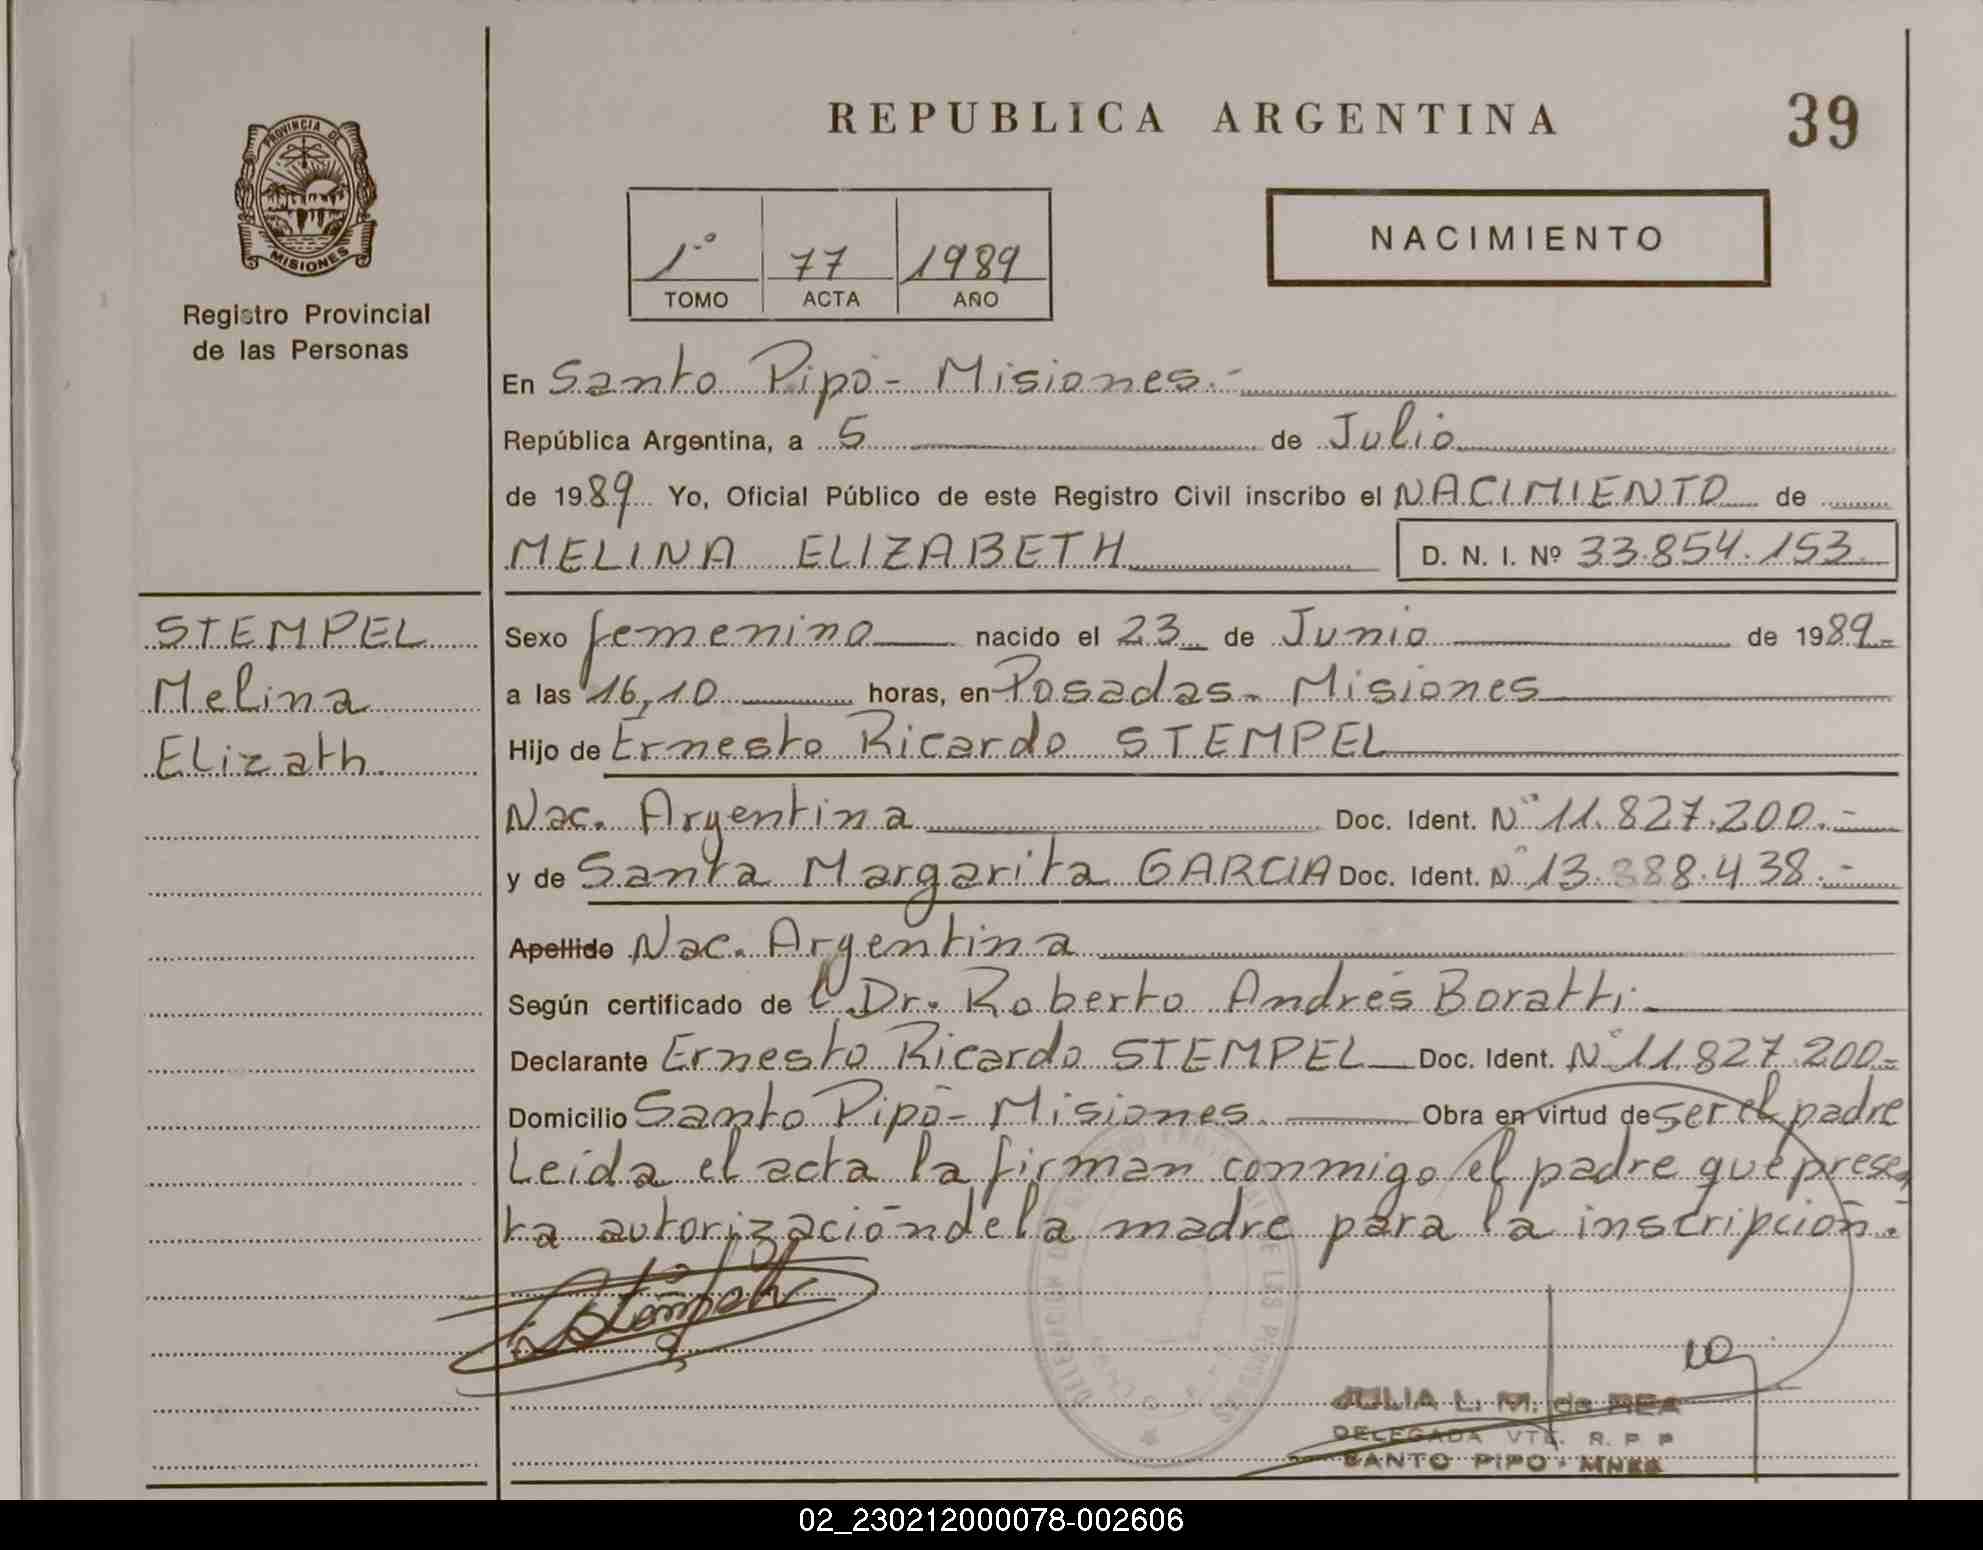 REPUBLICA ARGENTINA
39
PROVINCIA DE
MISIONES
Registro Provincial
de las Personas
1.º 77 1989
TOMO ACTA AÑO
NACIMIENTO
En Santo Pipó - Misiones.-
República Argentina, a 5 de Julio
de 1989 Yo, Oficial Público de este Registro Civil inscribo el NACIMIENTO de
MELINA ELIZABETH D. N. I. Nº 33.854.153.
STEMPEL
Melina
Elizath
Sexo femenino nacido el 23 de Junio de 1989.-
a las 16,10 horas, en Posadas - Misiones
Hijo de Ernesto Ricardo STEMPEL
Nac. Argentina Doc. Ident. Nº 11.827.200.-
y de Santa Margarita GARCIA Doc. Ident. Nº 13.888.438.-
Apellido Nac. Argentina
Según certificado de l Dr. Roberto Andrés Boratti.
Declarante Ernesto Ricardo STEMPEL Doc. Ident. Nº 11.827.200=
Domicilio Santo Pipó - Misiones. Obra en virtud de ser el padre
Leída el acta la firman conmigo el padre que presen
ta autorización de la madre para la inscripción.-
JULIA L. M. de REA
DELEGADA VTE. R. P. P
SANTO PIPO - MNES
02_230212000078-002606